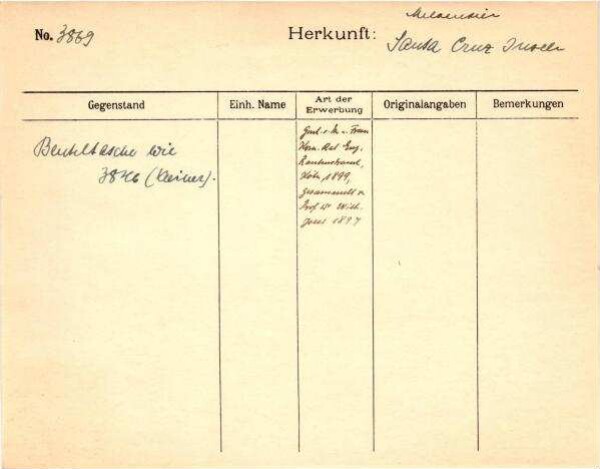 No. 3869
Herkunft: Melanesien
Santa Cruz Inseln
Gegenstand Einh. Name Art der Erwerbung Originalangaben Bemerkungen
Beuteltasche wie
3846 (kleiner).
Frau
Eug.
Rautenstrauch,
Köln, 1899,
gesammelt v.
Prof Dr Wilh.
Joest 1897